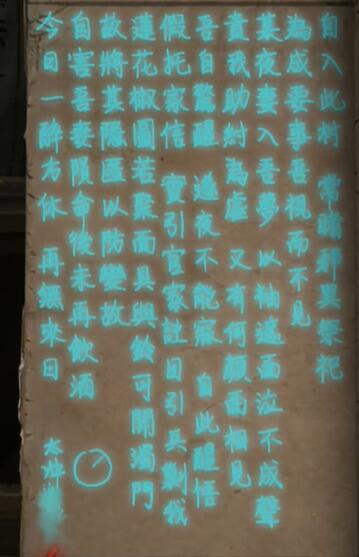 自入此村 常睹邪異祭祀
為成要事吾視而不見
某夜妻入吾夢 以袖遮面泣不成聲
責我助紂為虐 又有何顏面相見
吾自驚醒 遂夜不能寐 自此醒悟
假托家信 實引官家註目引兵剿我
蓮花椒圖若聚而具與 可開濁門
故將其隱匿以防變故
自害吾妻隕命後未再飲酒
今日一醉方休 再無來日